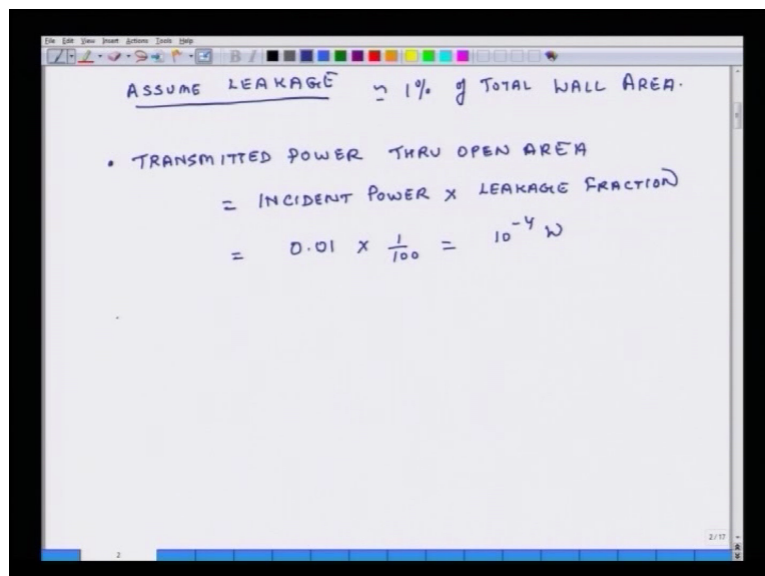 File Edit View Insert Actions Tools Help
ASSUME LEAKAGE ≃ 1% of TOTAL WALL AREA.
• TRANSMITTED POWER THRU OPEN AREA
= INCIDENT POWER × LEAKAGE FRACTION
= 0.01 × 1/100 = 10⁻⁴ W
2/17
2